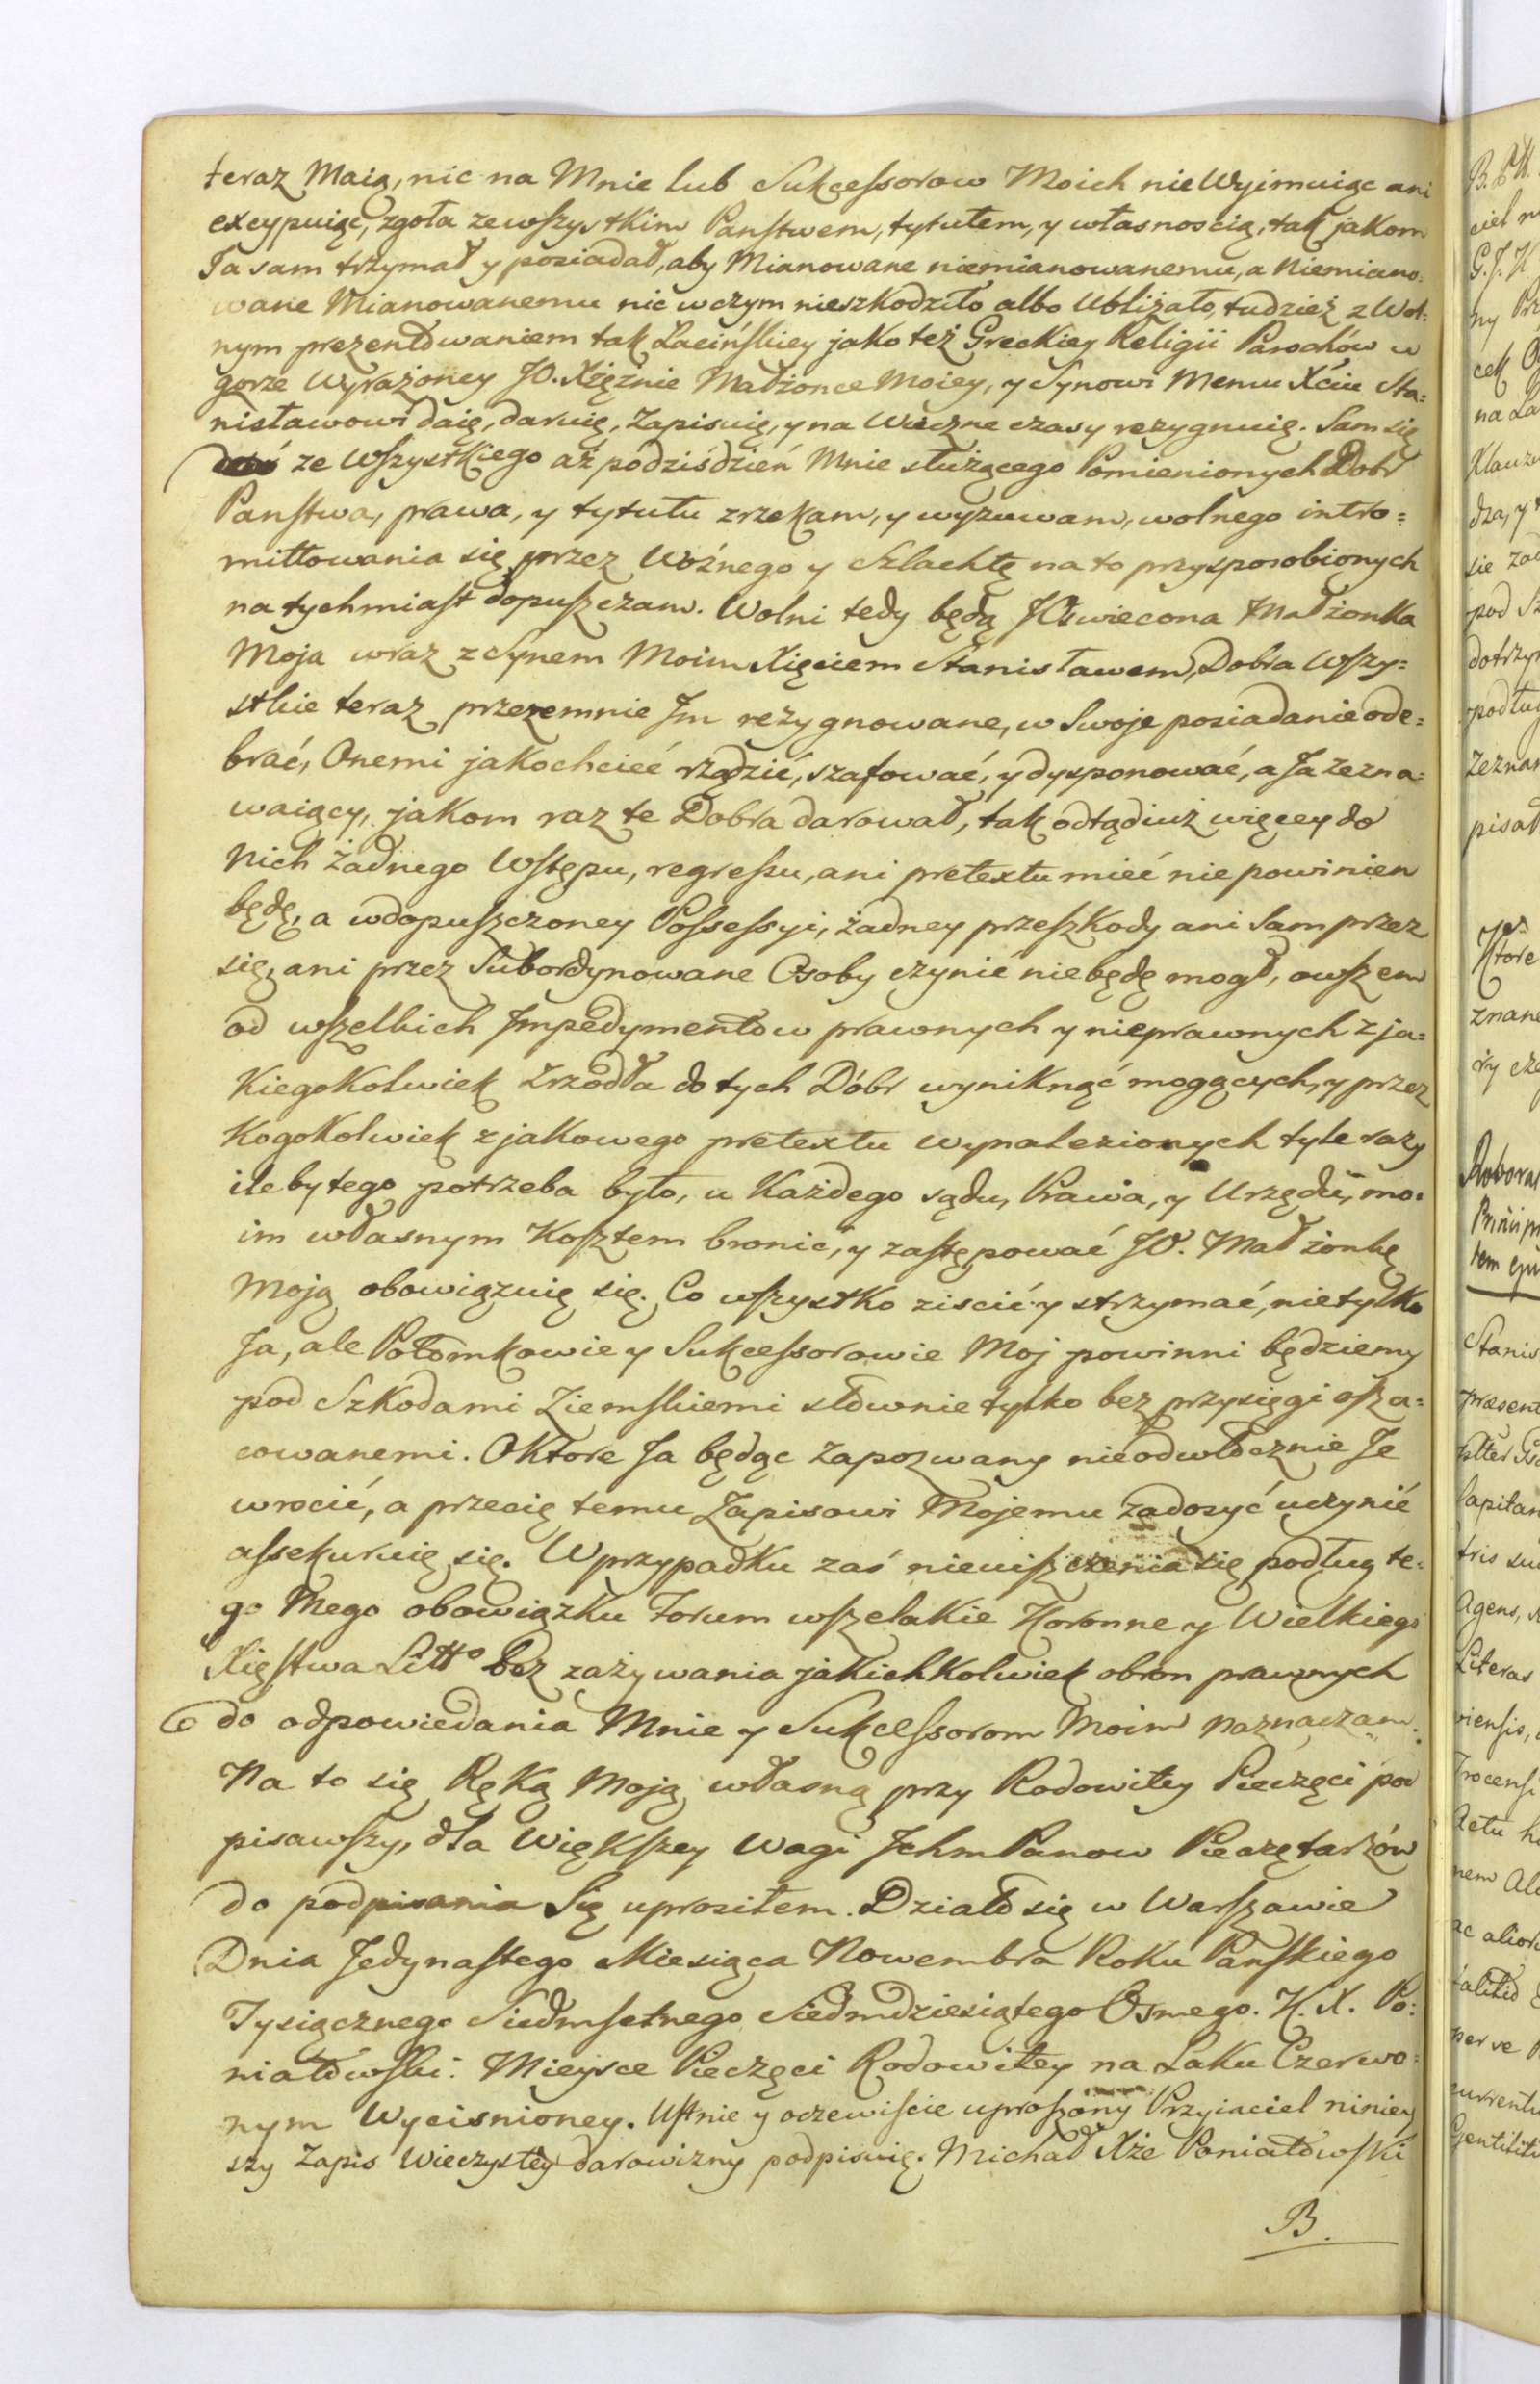 teraz Maią, nic na Mnie lub Sukcessorow Moich nie Wyimuiąc ani
excypuiąc, zgoła ze wszystkim Panstwem, tytułem, y własnoscią, tak jakom
Ja sam trzymał y posiadał, aby Mianowane niemianowanemu, a Niemiano=
wane Mianowanemu nic w czym nieszkodziło albo Ubliżało, tudzież z Wol=
nym prezentowaniem tak Łacińskiey jako też Greckiey Religii Parochów w
gorze Wyrażoney JO. Xiężnie Małżonce Moiey, y Synowi Memu Xciu Sta=
nisławowi daię, daruię, Zapisuię, y na Wieczne czasy rezygnuię. Sam się
ze Wszystkiego aż podziśdzień Mnie służącego Pomienionych Dobr
Panstwa, prawa, y tytułu zrzekam, y wyzuwam, wolnego intro=
mittowania się przez Woźnego y Szlachtę na to przysposobionych
natychmiast dopuszczam. Wolni tedy będą JOswiecona Małżonka
Moja wraz z Synem Moim Xięciem Stanisławem, Dobra Wszy=
stkie teraz przezemnie Im rezygnowane, w Swoje posiadanie ode=
brać, Onemi jako chcieć rządzić, szafować, y dysponować, a Ja zezna=
waiący, jakom raz te Dobra darował, tak odtąd iuż więcey do
Nich żadnego Wstępu, regressu, ani pretextu mieć nie powinien
będę, a w dopuszczoney Possessyi, żadney przeszkody ani Sam przez
się, ani przez Subordynowane Osoby czynić niebędę mogł, owszem
od wszelkich Impedymentow prawnych y nieprawnych z ja=
kiegokolwiek Zrzodła do tych Dóbr wyniknąć mogących, y przez
Kogokolwiek z jakowego pretextu wynalezionych tyle razy
ileby tego potrzeba było, u Każdego sądu, Prawa, y Urzędu, mo=
im własnym Kosztem bronić, y zastępować JO. Małżonkę
Moją obowiązuię się. Co wszystko ziscić y strzymać, nietylko
Ja, ale Potomkowie y Sukcessorowie Moj powinni będziemy
pod Szkodami Ziemskiemi słownie tylko bez przysięgi osza=
cowanemi. O ktore Ja będąc Zapozwany nieodwłocznie Je
wrocić, a przecię temu Zapisowi Mojemu zadosyć uczynić
assekuruię się. W przypadku zaś nieuiszczenia się podług te=
go Mego obowiązku Forum wszelakie Koronne y Wielkiego
Xięstwa Litto bez zażywania jakichkolwiek obron prawnych
do odpowiedania Mnie y Sukcessorom Moim naznaczam.
Na to się Ręką Moją własną przy Rodowitey Pieczęci pod
pisawszy, dla Większey Wagi Ichm Panow Pieczętarzów
do podpisania Się uprosiłem. Działo się w Warszawie
Dnia Jedynastego Miesiąca Nowembra Roku Pańskiego
Tysiącznego Siedmsetnego Siedmdziesiątego Osmego. K. X. Po=
niatowski. Mieysce Pieczęci Rodowitey na Laku Czerwo=
nym Wycisnioney. Ustnie y oczewiscie uproszony Przyiaciel niniey
szy Zapis Wieczystey darowizny podpisuię. Michał Xże Poniatowski
B.